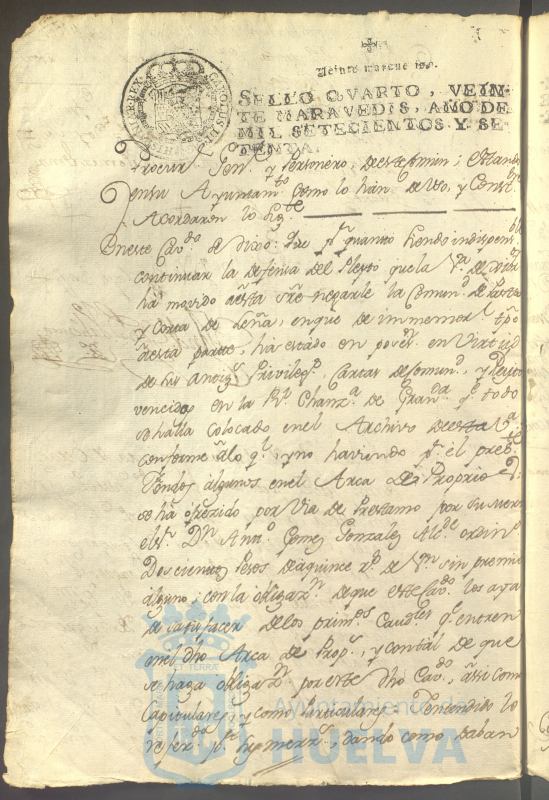 Veinte marauedis.
SELLO QVARTO, VEIN-
TE MARAVEDIS, AÑO DE
MIL SETECIENTOS Y SE-
TENTA.
Procur.r Gen.l y Personero, de este comun; estando
en su Ayuntam.to como lo han de uso, y Cost.bre
Acordaron lo sig.te
En este Cav.do se dixo: Que p.r quanto siendo indispens.ble
continuar la defensa del Pleyto que la V.a de
ha movido a esta sre negarle la Comun.d de Pastos
y Corta de Leña, en que de immemor.l tpo
a esta parte, ha estado en poses.n en Virtud
de sus antig.s Privileg.s Cartas de Comun.d y Pleyto
vencido en la R.l Chanz.a de Gran.da q.e todo
se halla colocado en el Archivo de esta V.a
conforme a lo q.l, y no haviendo p.r el pres.te
fondos algunos en el Arca de Proprios
se ha ofrezido por Via de Prestamo por su mrd
el s.r D.n Ant.o Gomez Gonzalez Alc.e ordin.o
Doscientos Pesos de a quince r.s de V.n sin premio
alguno, con la obligaz.n de que este Cav.do los aya
de satisfacer de los prim.os Caudales q.e entren
en el dho Arca de Prop.s, y con tal de que
se haga obligaz.n por este dho Cav.do, assi como
Capitulares, y como particulares: Y entendido lo
refer.do p.r sus merz.s, dando como daban
ET TERRA
Ayuntamiento de
HUELVA